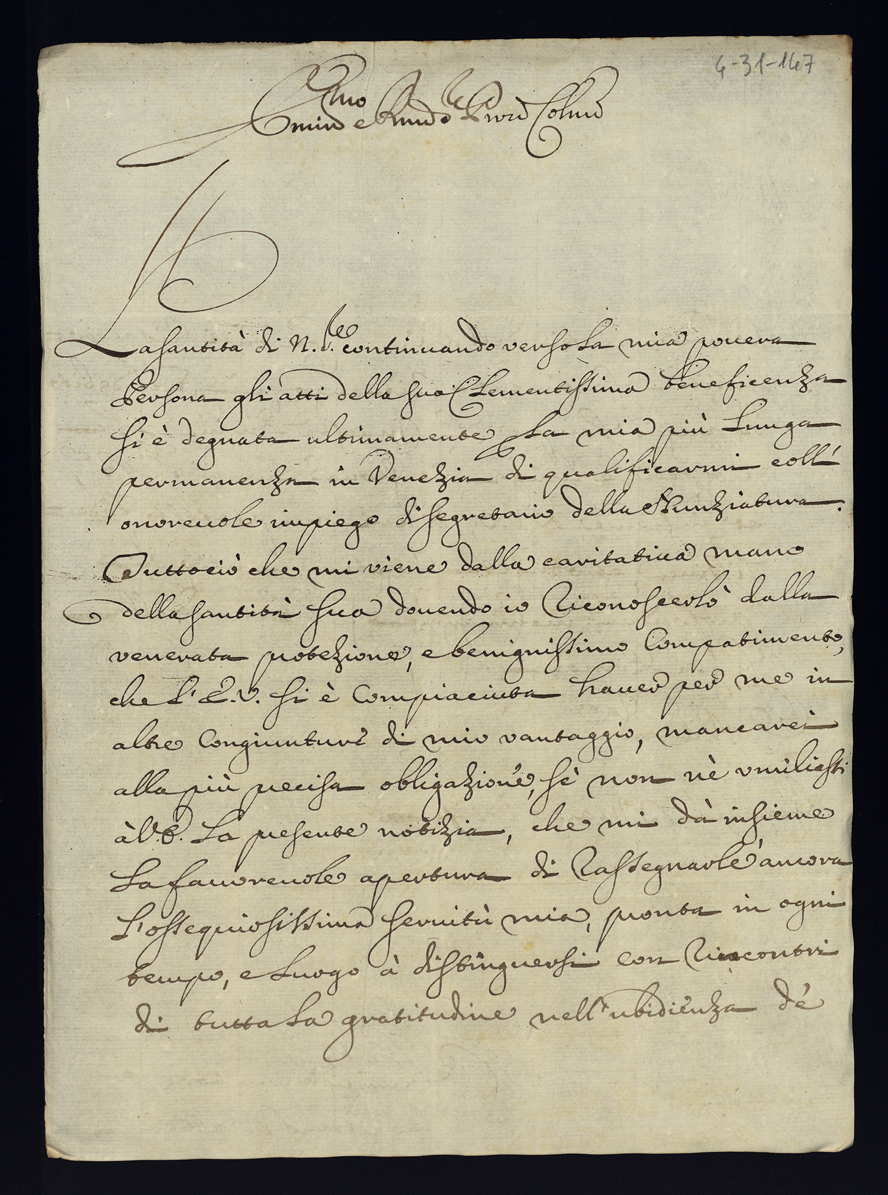 4-31-147
Emin.mo e Rmo Sig.re Prõn Colmõ
La santità di N. S.re continuando verso la mia povera
Persona gli atti della sua Clementissima beneficenza
si è degnata ultimamente p la mia più lunga
permanenza in Venezia di qualificarmi coll'
onorevole impiego di segretario della Nunziatura.
Tuttociò che mi viene dalla caritativa mano
della santità sua dovendo io riconoscerlo dalla
venerata protezione, e benignissimo Compatimento,
che l'E.V. si è Compiaciuta haver per me in
altre Congiunture di mio vantaggio, mancarei
alla più precisa obligazione, sè non nè umiliassi
à V.E. la presente notizia, che mi dà insieme
la favorevole apertura di rassegnarle ancora
l'ossequiosissima servitù mia, pronta in ogni
tempo, e luogo à distinguersi con riscontri
di tutta la gratitudine nell'ubidienza dè